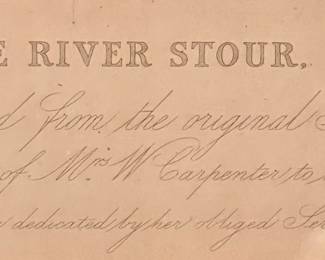 E RIVER STOUR,
d from the original
of Mrs W. Carpenter to
dedicated by her obliged Ser